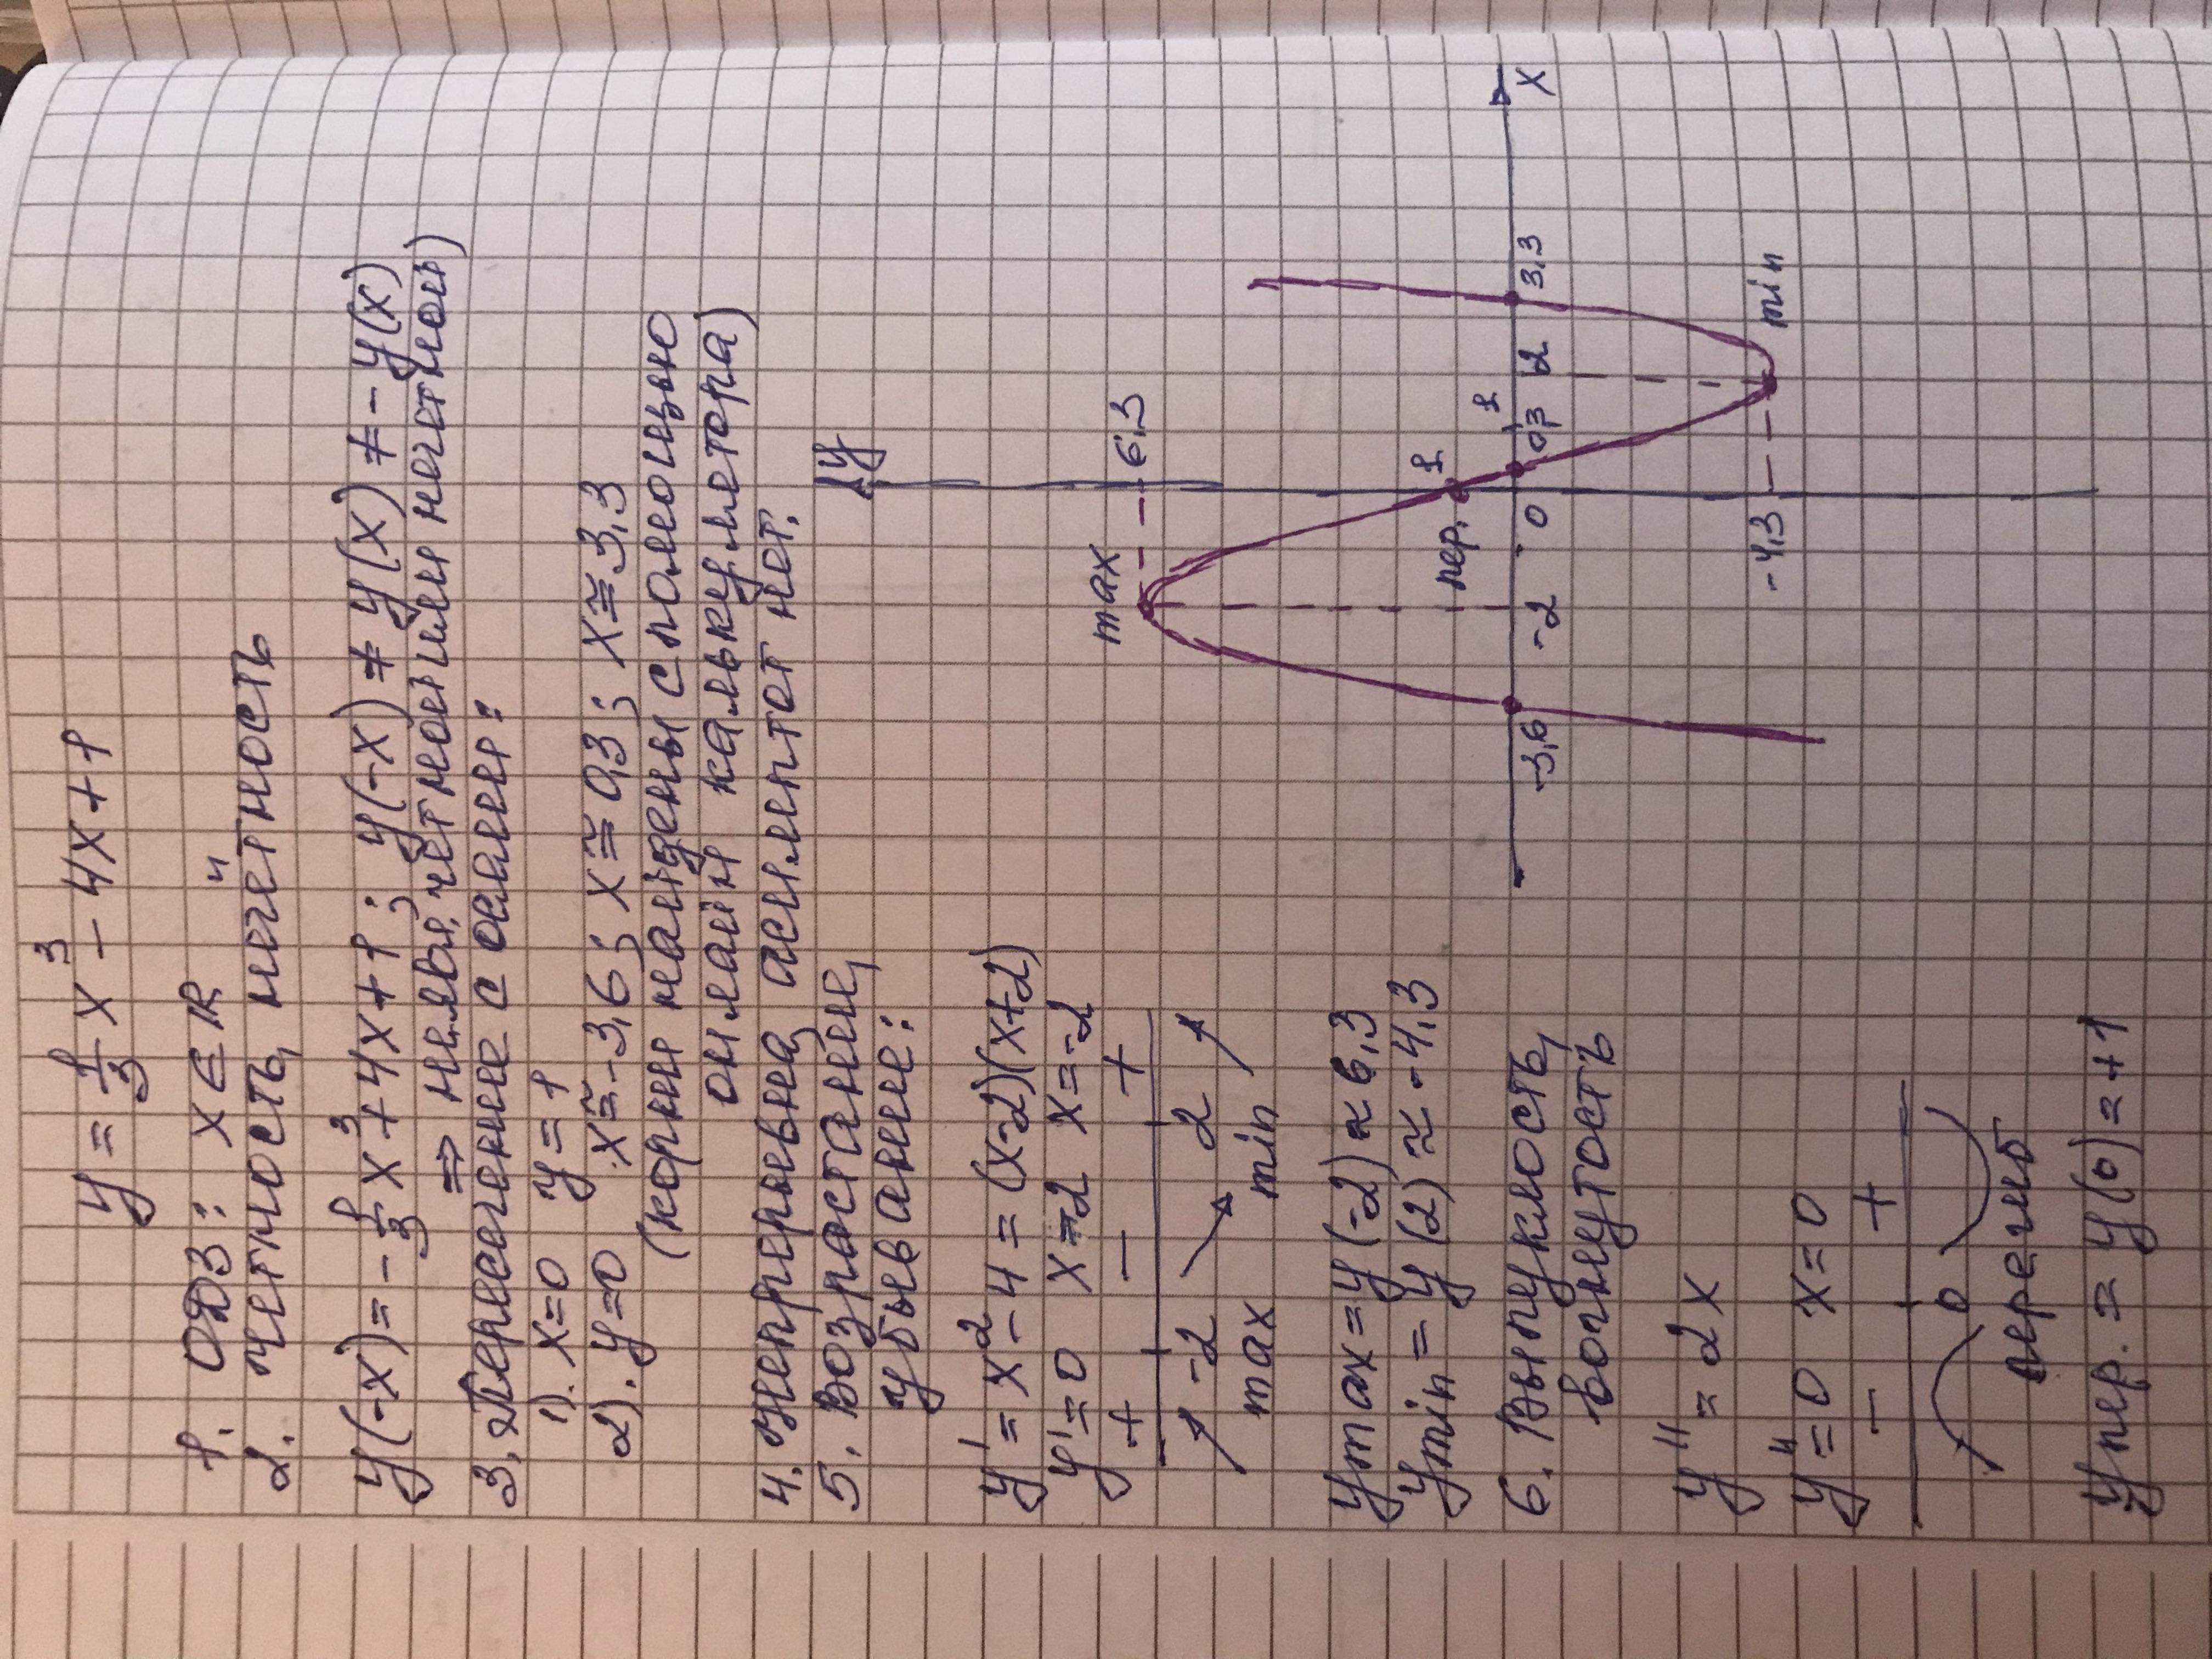 y = 1/3 x³ - 4x + 1
1. ОДЗ: x ∈ R
2. Четность, и нечетность
y(-x) = -1/3 x³ + 4x + 1; y(-x) ≠ y(x) ≠ -y(x)
⇒ не явл. четной или нечетной)
3. Пересечение с осями:
1). x=0 y=1
2). y=0 x≅-3,6; x≅0,3; x≅3,3
(корни найдены с помощью
онлайн калькулятора)
4. Непрерывна, асимптот нет.
5. Возрастание,
убывание:
y' = x² - 4 = (x-2)(x+2)
y' = 0 x=2 x=-2
+ - +
-2 2
max min
ymax = y(-2) ≈ 6,3
ymin = y(2) ≈ -4,3
6. Выпуклость,
вогнутость
y'' = 2x
y'' = 0 x=0
- +
0
перегиб
yпер. = y(0) = +1
y
max 6,3
пер. 1
1
-3,6 -2 0 0,3 2 3,3 x
-4,3 min